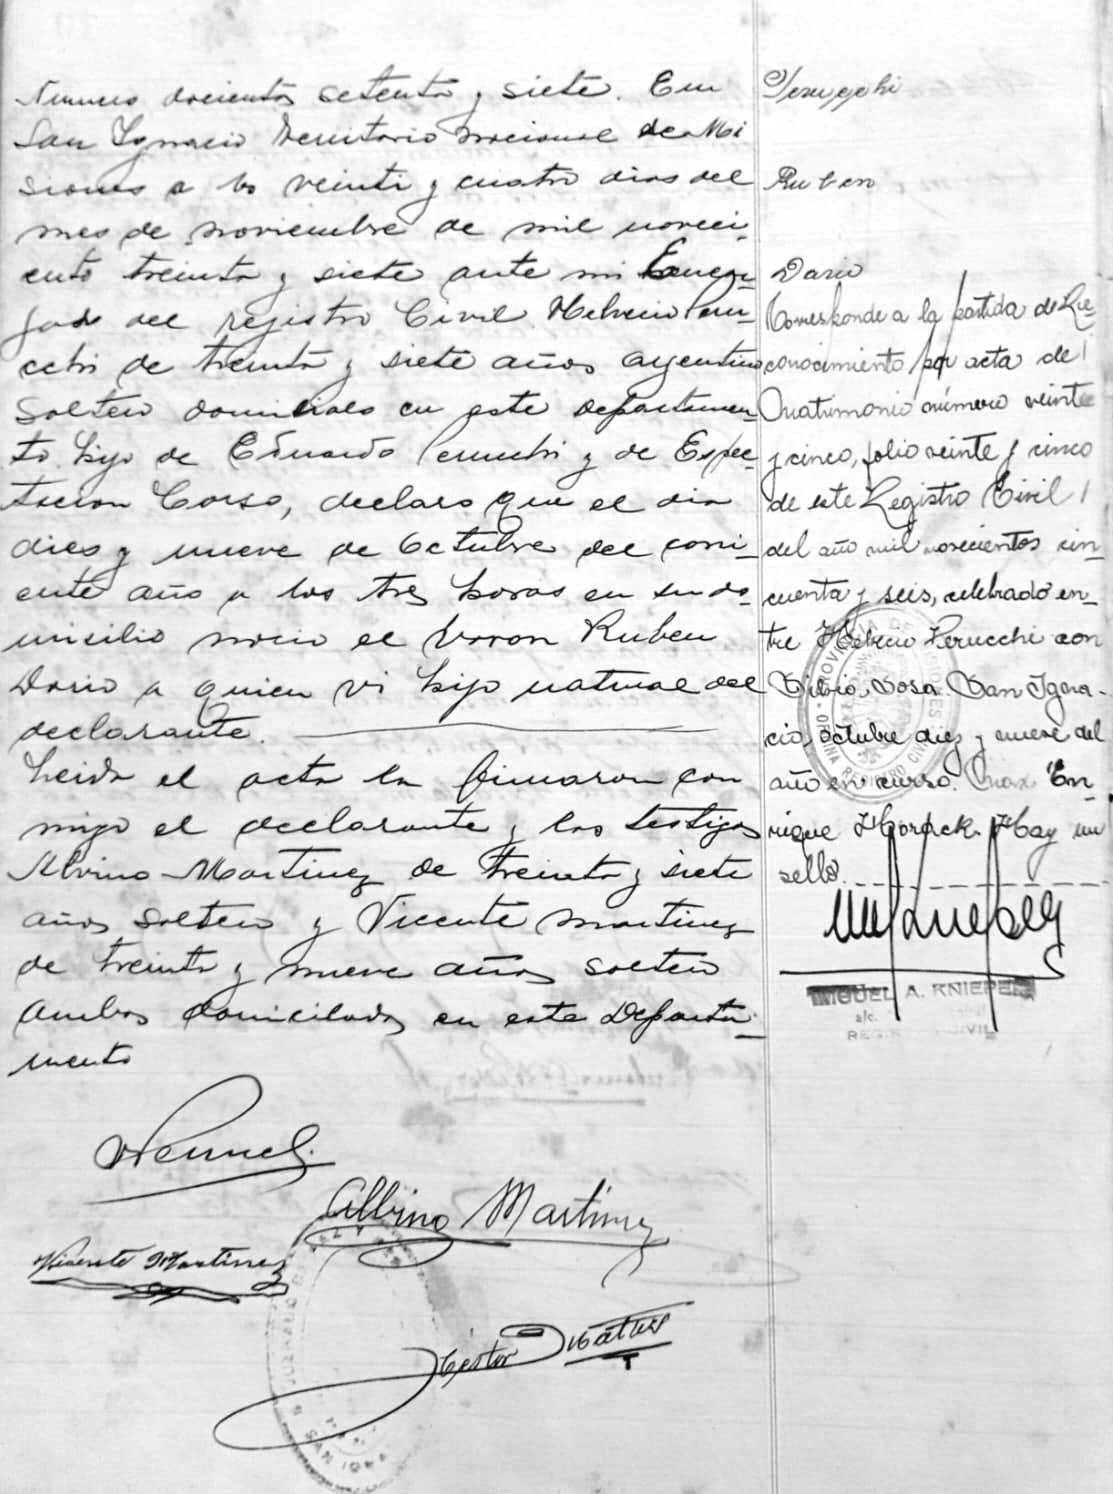 Numero docientos setenta y siete. En
San Ygnacio Territorio nacional de Mi
siones a los veinti y cuatro dias del
mes de noviembre de mil novei-
ento treinta y siete ante mi Encar-
gado del rejistro Civil Helvecio Peru-
cchi de treinta y siete años argentino
soltero domiciliado en este departamen-
to hijo de Eduardo Perucchi y de Espec-
tacion Corso, declaro que el dia
dies y nueve de Octubre del corri-
ente año a las tres horas en su do-
micilio nacio el varon Ruben
Dario a quien vi hijo natural del
declarante.
Leida el acta la firmaron con
migo el declarante y los testigos
Alvino Martinez de treinta y siete
años soltero y Vicente Martinez
de treinta y nueve años soltero
ambos domiciliados en este Departa-
mento
Perucchi
Ruben
Dario
Corresponde a la partida de Re-
conocimiento por acta de
matrimonio número veinte
y cinco, folio veinte y cinco
de este Registro Civil
del año mil novecientos cin-
cuenta y seis, celebrado en-
tre Helvecio Perucchi con
Silvia Sosa. San Igna-
cio, octubre diez y nueve del
año en curso. Max En-
rique Horack. Hay un
sello.
MIGUEL A. KNIEPER
REGISTRO CIVIL
Albino Martinez
Vicente Martinez
Héctor